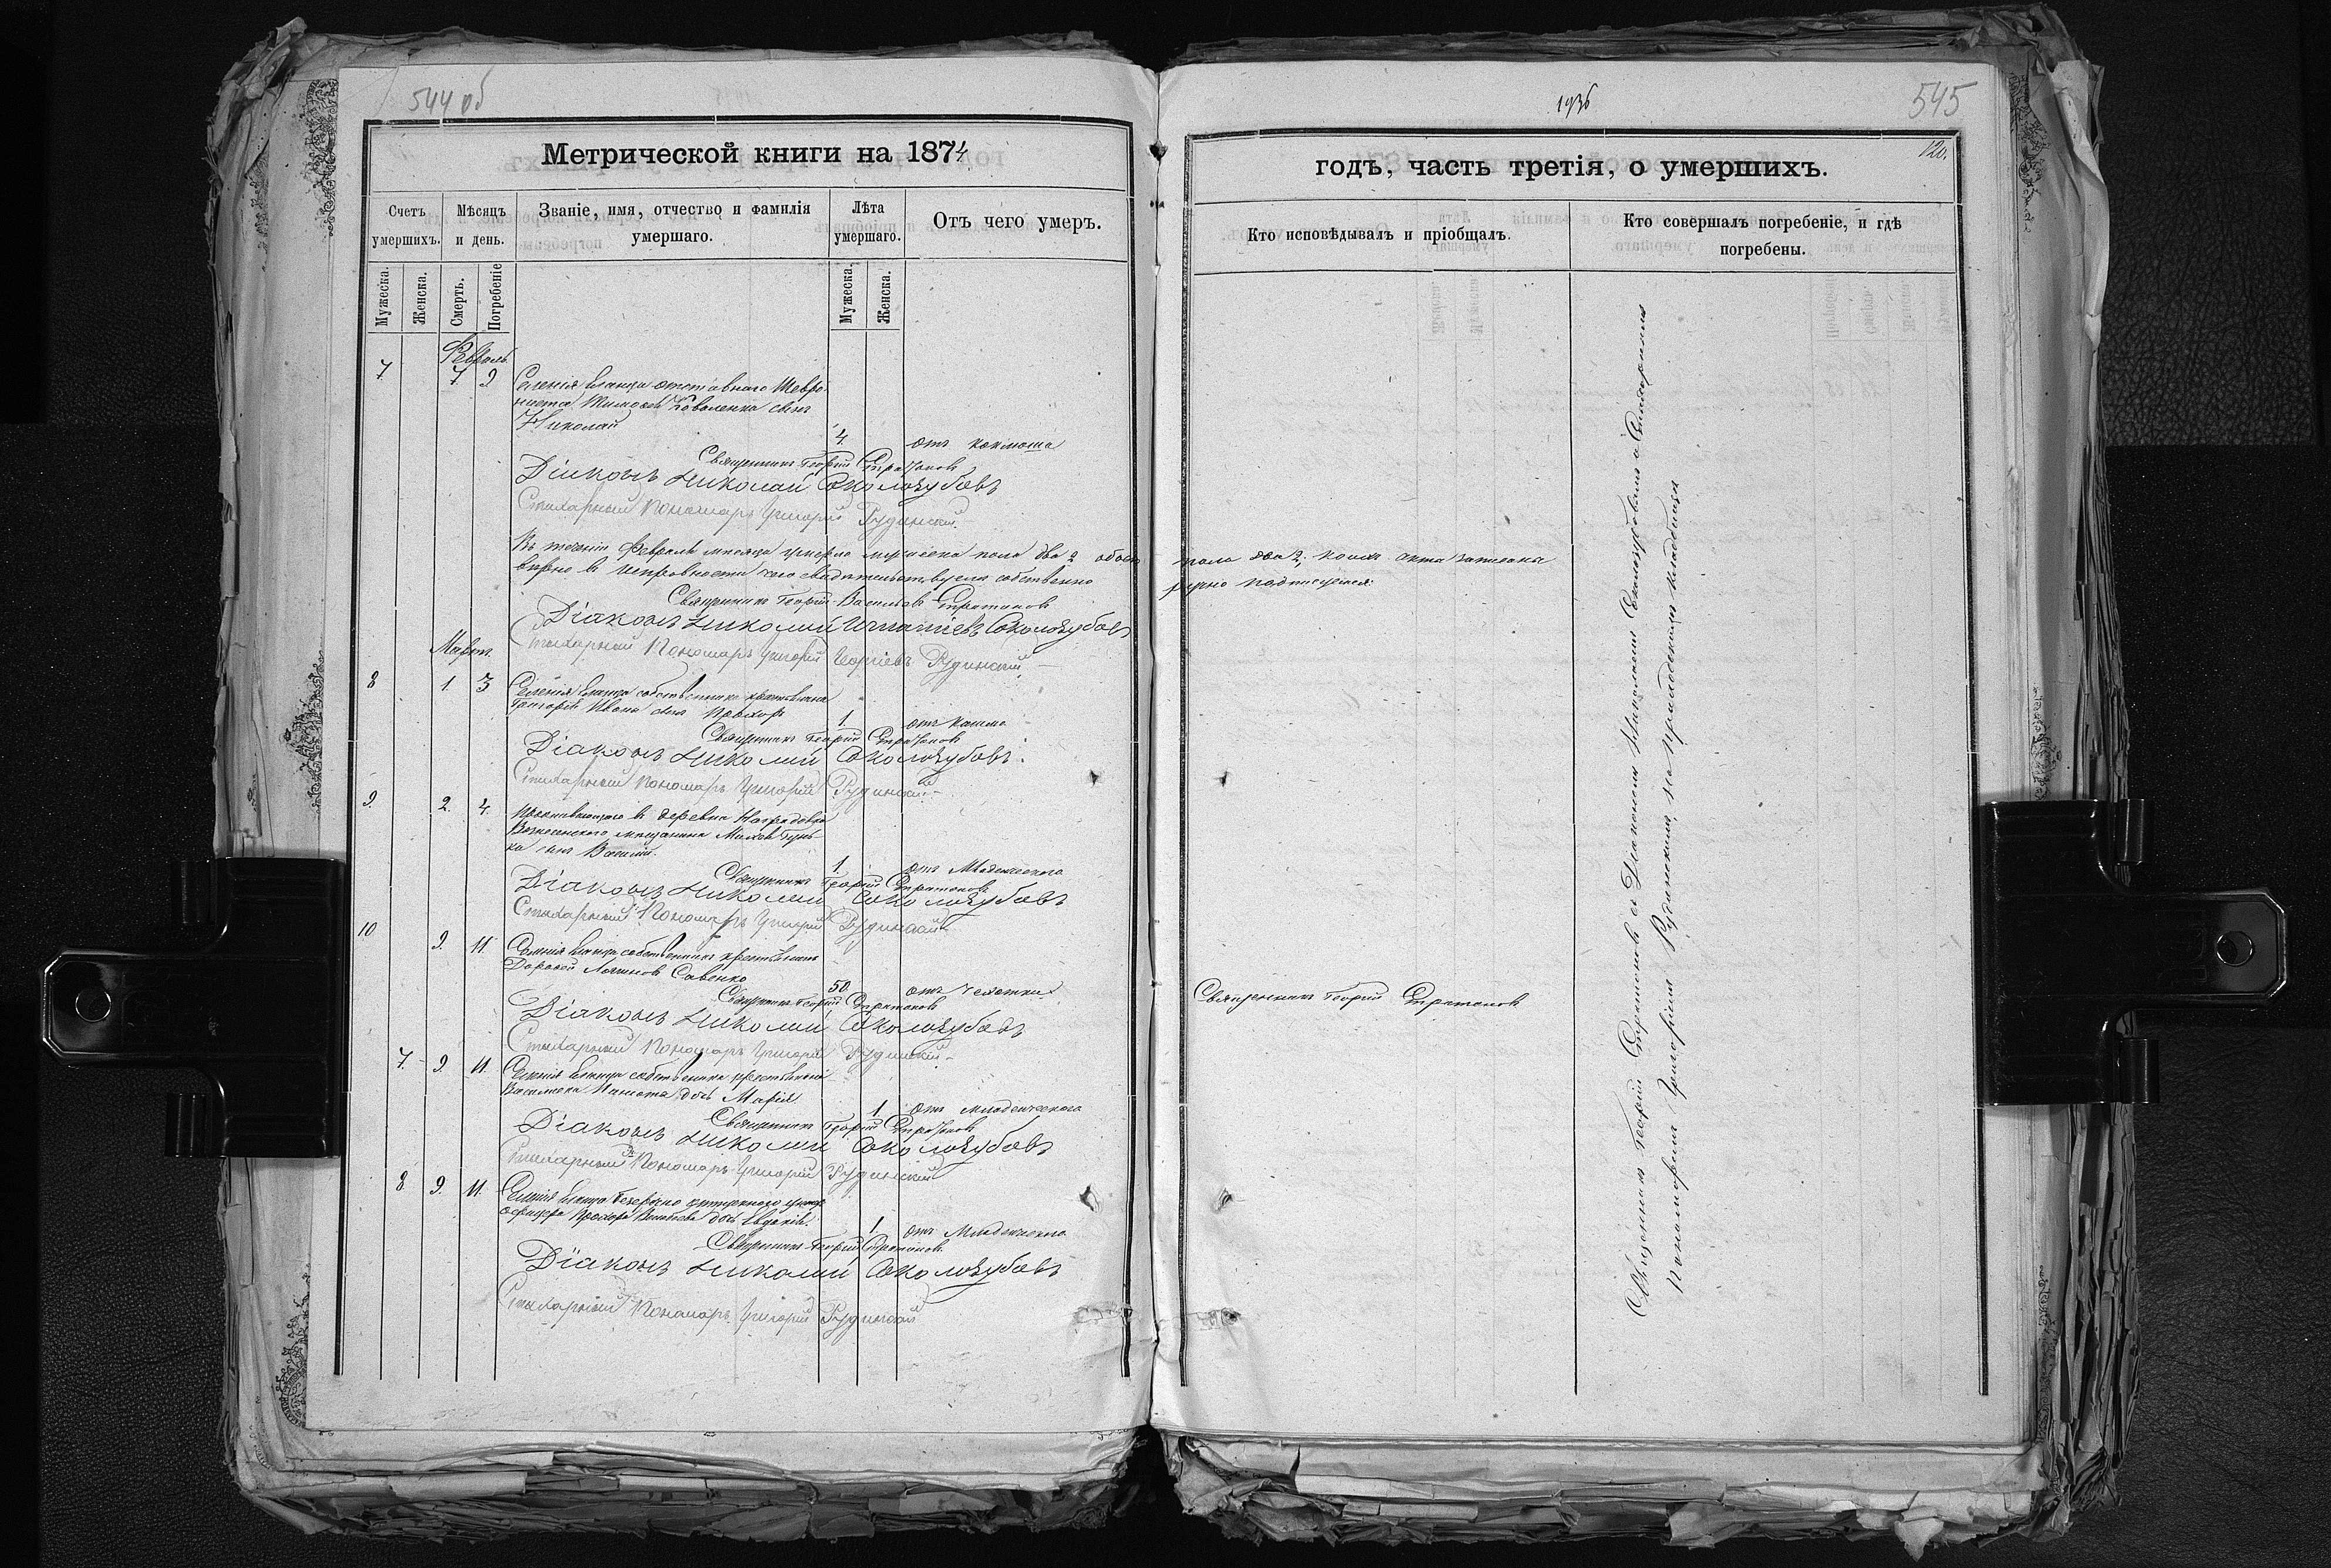 544 об
Метрической книги на 1874
Счетъ умершихъ.
Мѣсяцъ и день.
Званіе, имя, отчество и фамилія умершаго.
Лѣта умершаго.
Отъ чего умеръ.
Мужеска.
Женска.
Смерть.
Погребеніе
Мужеска.
Женска.
Февраль
7 7 9 Селенія Еланца отставного
Тимофея Коваленка сынъ
Николай
4. отъ коклюша
Священникъ Георгій Стратоновъ
Діаконъ Николай Соколозубовъ
Стихарный Пономарь Григорій Рудинскій
Въ теченіи Февраля мѣсяца умерло мужеска пола два 2 обоего
вѣрно въ исправности чего свидѣтельствуемъ собственно
Священникъ Георгій Васильевъ Стратоновъ
Діаконъ Николай Игнатіевъ Соколозубовъ
Стихарный Пономарь Григорій Георгіевъ Рудинскій
Мартъ.
8 1. 3 Селенія Еланца собственника крестьянина
Григорія Ивана сынъ Прохоръ
1. отъ кашля
Священникъ Георгій Стратоновъ
Діаконъ Николай Соколозубовъ.
Стихарный Пономарь Григорій Рудинскій
9. 2. 4. Проживающаго в деревне
Вознесенского мещанина
сынъ Василій.
1. отъ Младенческого
Священникъ Георгій Стратоновъ
Діаконъ Николай Соколозубовъ
Стихарный Пономарь Григорій Рудинскій
10 9. 11. Селенія Еланца собственникъ крестьянинъ
Дорофей Савенко
50. отъ чахотки
Священникъ Георгій Стратоновъ
Діаконъ Николай Соколозубовъ
Стихарный Пономарь Григорій Рудинскій
7 9. 11. Селенія Еланца собственника крестьянина
дочь Марія.
1. отъ младенческого
Священникъ Георгій Стратоновъ
Діаконъ Николай Соколозубовъ
Стихарный Пономарь Григорій Рудинскій
8 9. 11. Селенія Еланца унтеръ
офицера Прохора дочь Евдокія.
1. отъ Младенческого
Священникъ Георгій Стратоновъ
Діаконъ Николай Соколозубовъ
Стихарный Пономарь Григорій Рудинскій
545
120.
годъ, часть третія, о умершихъ.
Кто исповѣдывалъ и пріобщалъ.
Кто совершалъ погребеніе, и гдѣ погребены.
пола два 2, коихъ акта записаны
ручно подписуемся:
Священникъ Георгій Стратоновъ
Священникъ Георгій Стратоновъ съ Діакономъ Николаемъ Соколозубовымъ и Стихарнымъ
Пономаремъ Григоріемъ Рудинскимъ, на приходскомъ кладбище